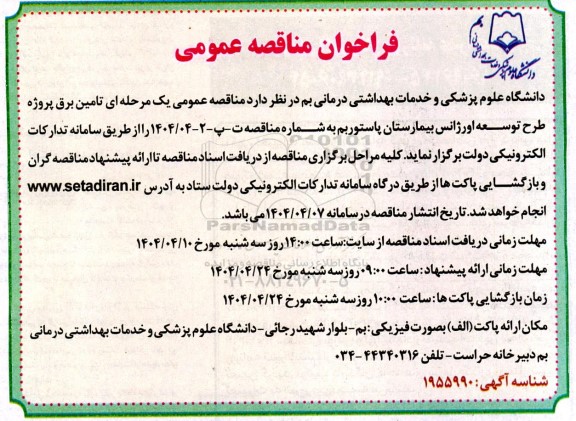 فراخوان مناقصه عمومی
دانشگاه علوم پزشکی و خدمات بهداشتی درمانی بم
دانشگاه علوم پزشکی و خدمات بهداشتی درمانی بم در نظر دارد مناقصه عمومی یک مرحله ای تامین برق پروژه
طرح توسعه اورژانس بیمارستان پاستور بم به شماره مناقصه ت-پ-۲-۱۴۰۴/۰۴ را از طریق سامانه تدارکات
الکترونیکی دولت برگزار نماید. کلیه مراحل برگزاری مناقصه از دریافت اسناد مناقصه تا ارائه پیشنهاد مناقصه گران
و بازگشایی پاکت ها از طریق درگاه سامانه تدارکات الکترونیکی دولت ستاد به آدرس www.setadiran.ir
انجام خواهد شد. تاریخ انتشار مناقصه در سامانه ۱۴۰۴/۰۴/۰۷ می باشد.
مهلت زمانی دریافت اسناد مناقصه از سایت: ساعت ۱۴:۰۰ روز سه شنبه مورخ ۱۴۰۴/۰۴/۱۰
مهلت زمانی ارائه پیشنهاد: ساعت ۰۹:۰۰ روز سه شنبه مورخ ۱۴۰۴/۰۴/۲۴
زمان بازگشایی پاکت ها: ساعت ۱۰:۰۰ روز سه شنبه مورخ ۱۴۰۴/۰۴/۲۴
مکان ارائه پاکت (الف) بصورت فیزیکی: بم-بلوار شهید رجائی-دانشگاه علوم پزشکی و خدمات بهداشتی درمانی
بم دبیرخانه حراست-تلفن ۴۴۳۴۰۳۱۶ -۰۳۴
شناسه آگهی: ۱۹۵۵۹۹۰
ParsNamadData
پایگاه اطلاع رسانی مناقصه و مزایده
۰۲۱-۸۸۳۴۹۶۷۰-۵